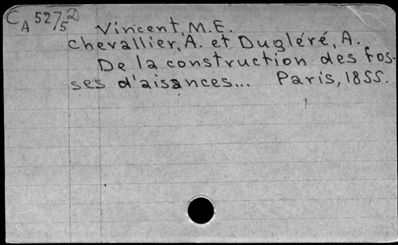 CA 527/52 Vincent, M.E.
Chevallier, A. et Dugléré, A.
De la construction des fos-
ses d'aisances... Paris, 1855.